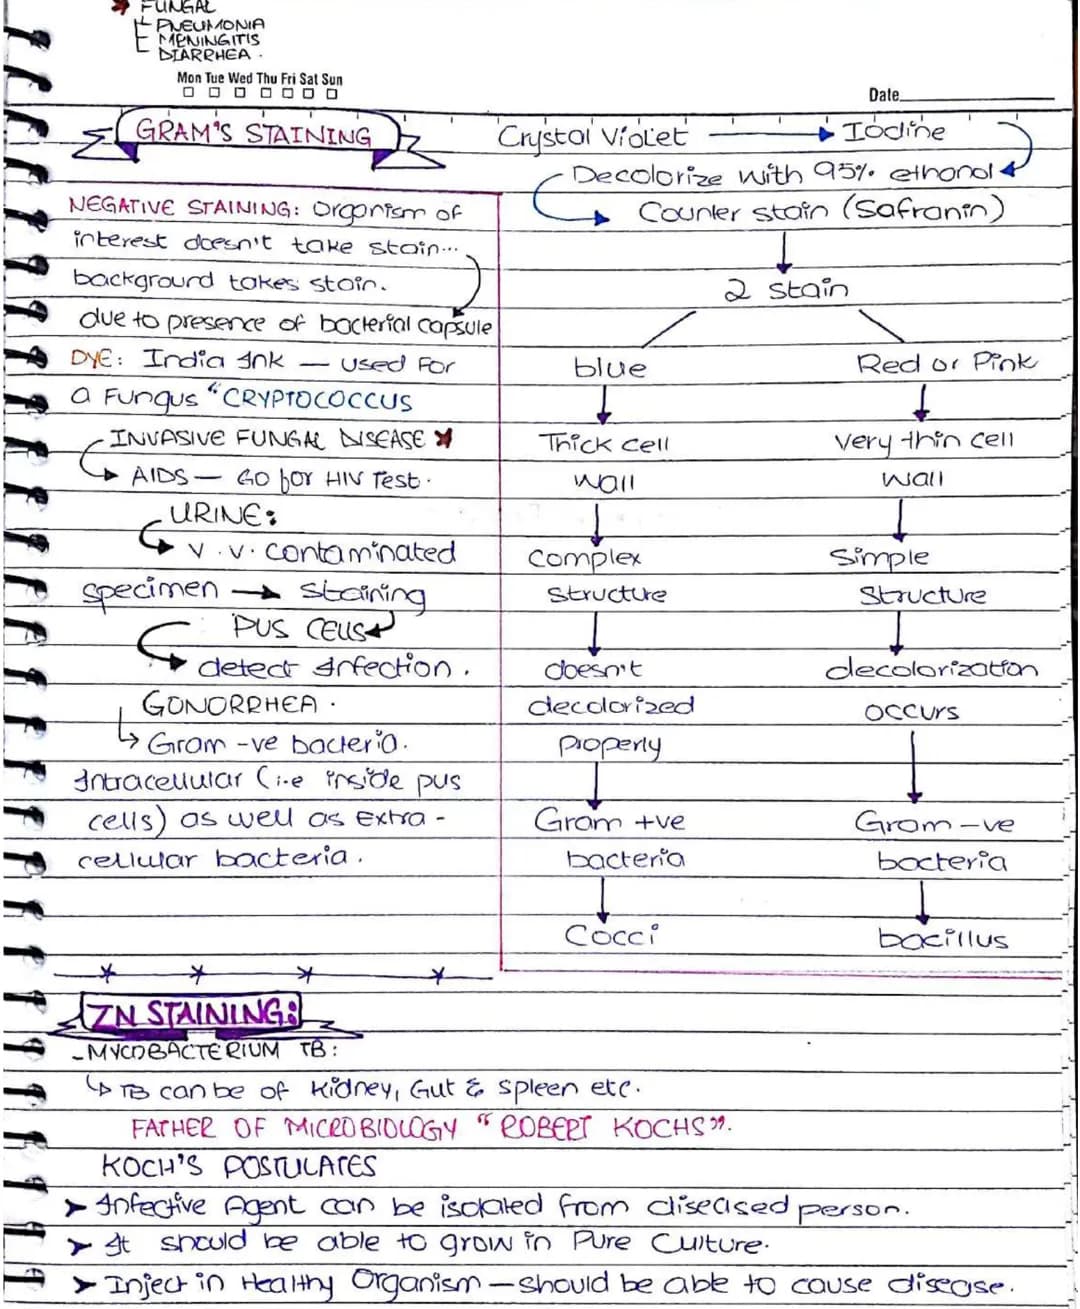 FUNGAL
PNEUMONIA
MENINGITIS
DIARRHEA.
Mon Tue Wed Thu Fri Sat Sun
Date
GRAM'S STAINING
Crystal Violet → Iodine
Decolorize with 95% ethanol
Counter stain (Safranin)
2 stain
blue
Thick cell
wall
complex
structure
doesn't
decolorized
properly
Gram +ve
bacteria
Cocci
Red or Pink
very thin cell
wall
Simple
Structure
decolorization
occurs
Gram -ve
bacteria
bacillus
NEGATIVE STAINING: Organism of
interest doesn't take stain...
background takes stain.
due to presence of bacterial capsule
DYE: India Ink — used for
a Fungus "CRYPTOCOCCUS
INVASIVE FUNGAL DISEASE
AIDS — Go for HIV Test.
URINE:
v.v. contaminated
specimen → staining
PUS CELLS
detect Infection.
GONORRHEA.
Gram -ve bacteria.
Intracellular (i.e inside pus
cells) as well as Extra-
cellular bacteria.
ZN STAINING:
-MYCOBACTERIUM TB:
TB can be of Kidney, Gut & spleen etc.
FATHER OF MICROBIOLOGY "ROBERT KOCHS".
KOCH'S POSTULATES
➤ Infective Agent can be isolated from diseased person.
➤ It should be able to grow in Pure Culture.
➤ Inject in Healthy Organism — should be able to cause disease.